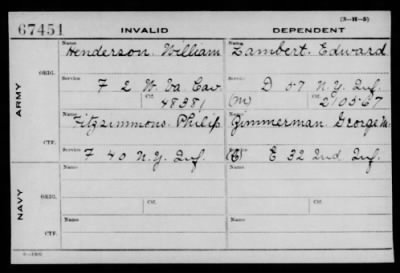 (3-H-5)
67451 INVALID DEPENDENT
Name Name
Henderson. William Zambert. Edward
ORIG. Service Service
F 2 W. Va Cav D 57 N.Y. Inf.
Ctf. Ctf.
48381 (M) 210567
ARMY
Name Name
Fitzsimmons. Philip Zimmerman George M.
CTF. Service Service
F 40 N.Y. Inf. (C) E 32 Ind. Inf.
NAVY
Name Name
ORIG.
Ctf. Ctf.
Name Name
CTF.